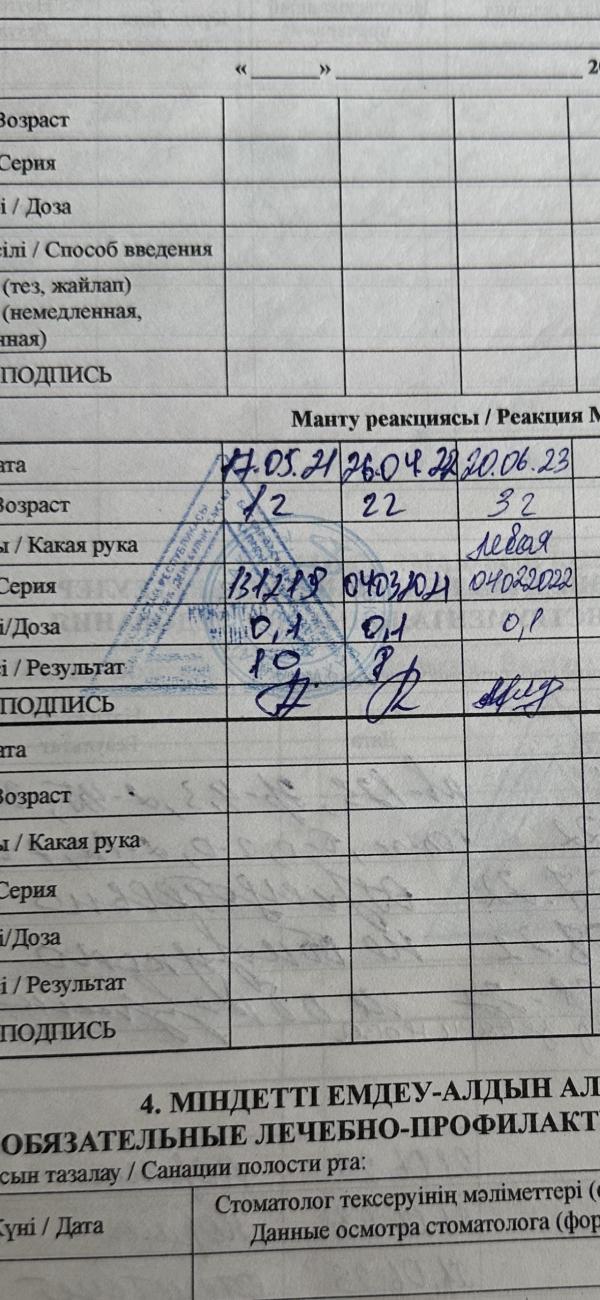 «______» ____________________ 2
Возраст
Серия
і / Доза
ілі / Способ введения
(тез, жайлап)
(немедленная,
ная)
ПОДПИСЬ
Манту реакциясы / Реакция М
ата 17.05.21 26.04.22 20.06.23
Возраст 12 22 32
ы / Какая рука левая
Серия 04022022
і/Доза 0,1 0,1 0,1
сі / Результат 10
ПОДПИСЬ
ата
Возраст
ы / Какая рука
Серия
і/Доза
і / Результат
ПОДПИСЬ
4. МІНДЕТТІ ЕМДЕУ-АЛДЫН АЛ
ОБЯЗАТЕЛЬНЫЕ ЛЕЧЕБНО-ПРОФИЛАКТ
сын тазалау / Санации полости рта:
Күні / Дата Стоматолог тексеруінің мәліметтері (
Данные осмотра стоматолога (фор